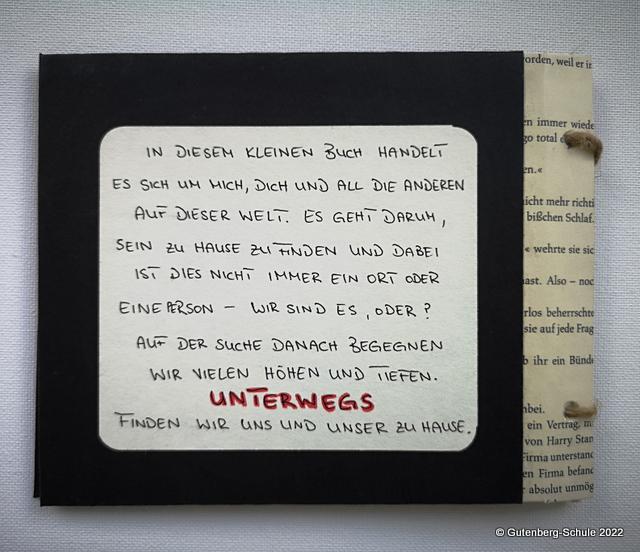 IN DIESEM KLEINEN BUCH HANDELT
ES SICH UM MICH, DICH UND ALL DIE ANDEREN
AUF DIESER WELT. ES GEHT DARUM,
SEIN ZU HAUSE ZU FINDEN UND DABEI
IST DIES NICHT IMMER EIN ORT ODER
EINE PERSON – WIR SIND ES, ODER?
AUF DER SUCHE DANACH BEGEGNEN
WIR VIELEN HÖHEN UND TIEFEN.
UNTERWEGS
FINDEN WIR UNS UND UNSER ZU HAUSE.
orden, weil er in
en immer wiede
go total
en.«
icht mehr richti
bißchen Schlaf.
« wehrte sie sic
ast. Also – noc
rlos beherrschte
sie auf jede Frag
b ihr ein Bünde
bei.
ein Vertrag, m
von Harry Stan
Firma unterstand
en Firma befand
r absolut unmög
© Gutenberg-Schule 2022